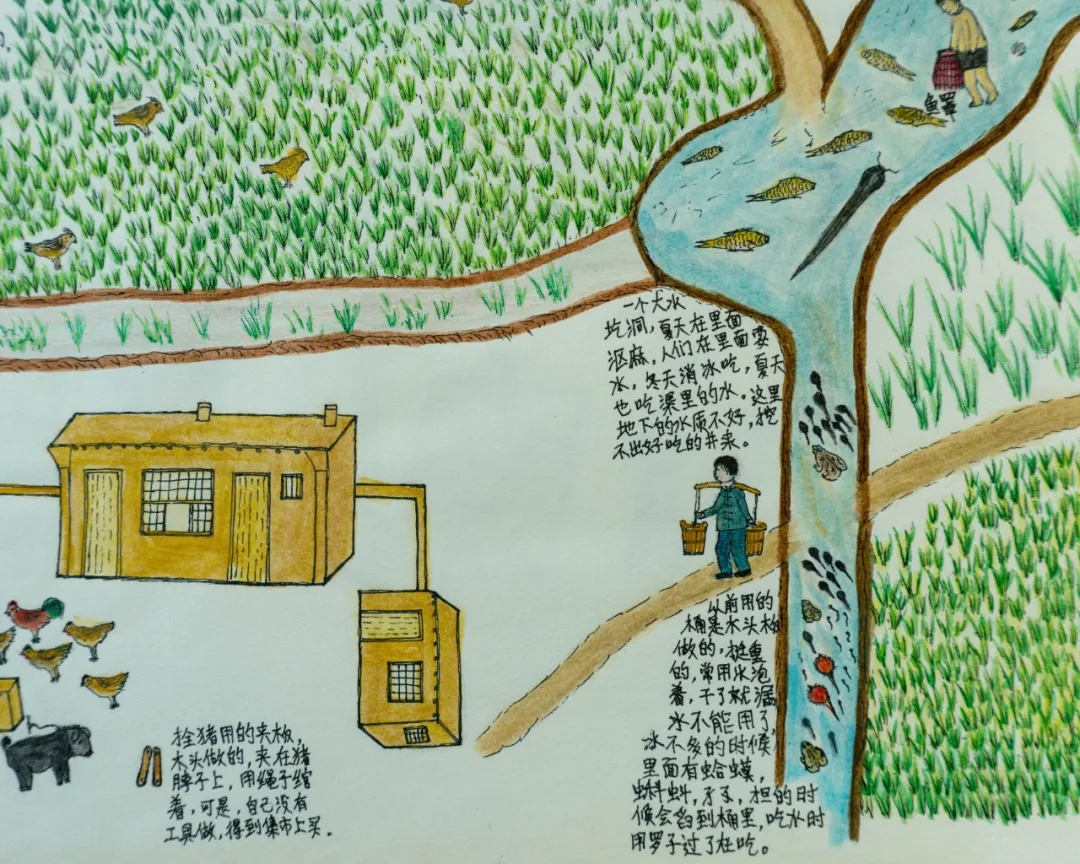 鱼罩
一个大水
圪洞，夏天在里面
沤麻，人们在里面耍
水，冬天消冰吃，夏天
也吃渠里的水。这里
地下的水质不好，挖
不出好吃的井来。
以前用的
桶是木头板
做的，挺重
的，常用水泡
着，干了就漏
水不能用了，
水不多的时候
里面有蛤蟆，
蝌蚪，孑孓，担的时
候会舀到桶里，吃水时
用罗子过了在吃。
拴猪用的夹板，
木头做的，夹在猪
脖子上，用绳子绾
着，可是，自己没有
工具做，得到集市上买。